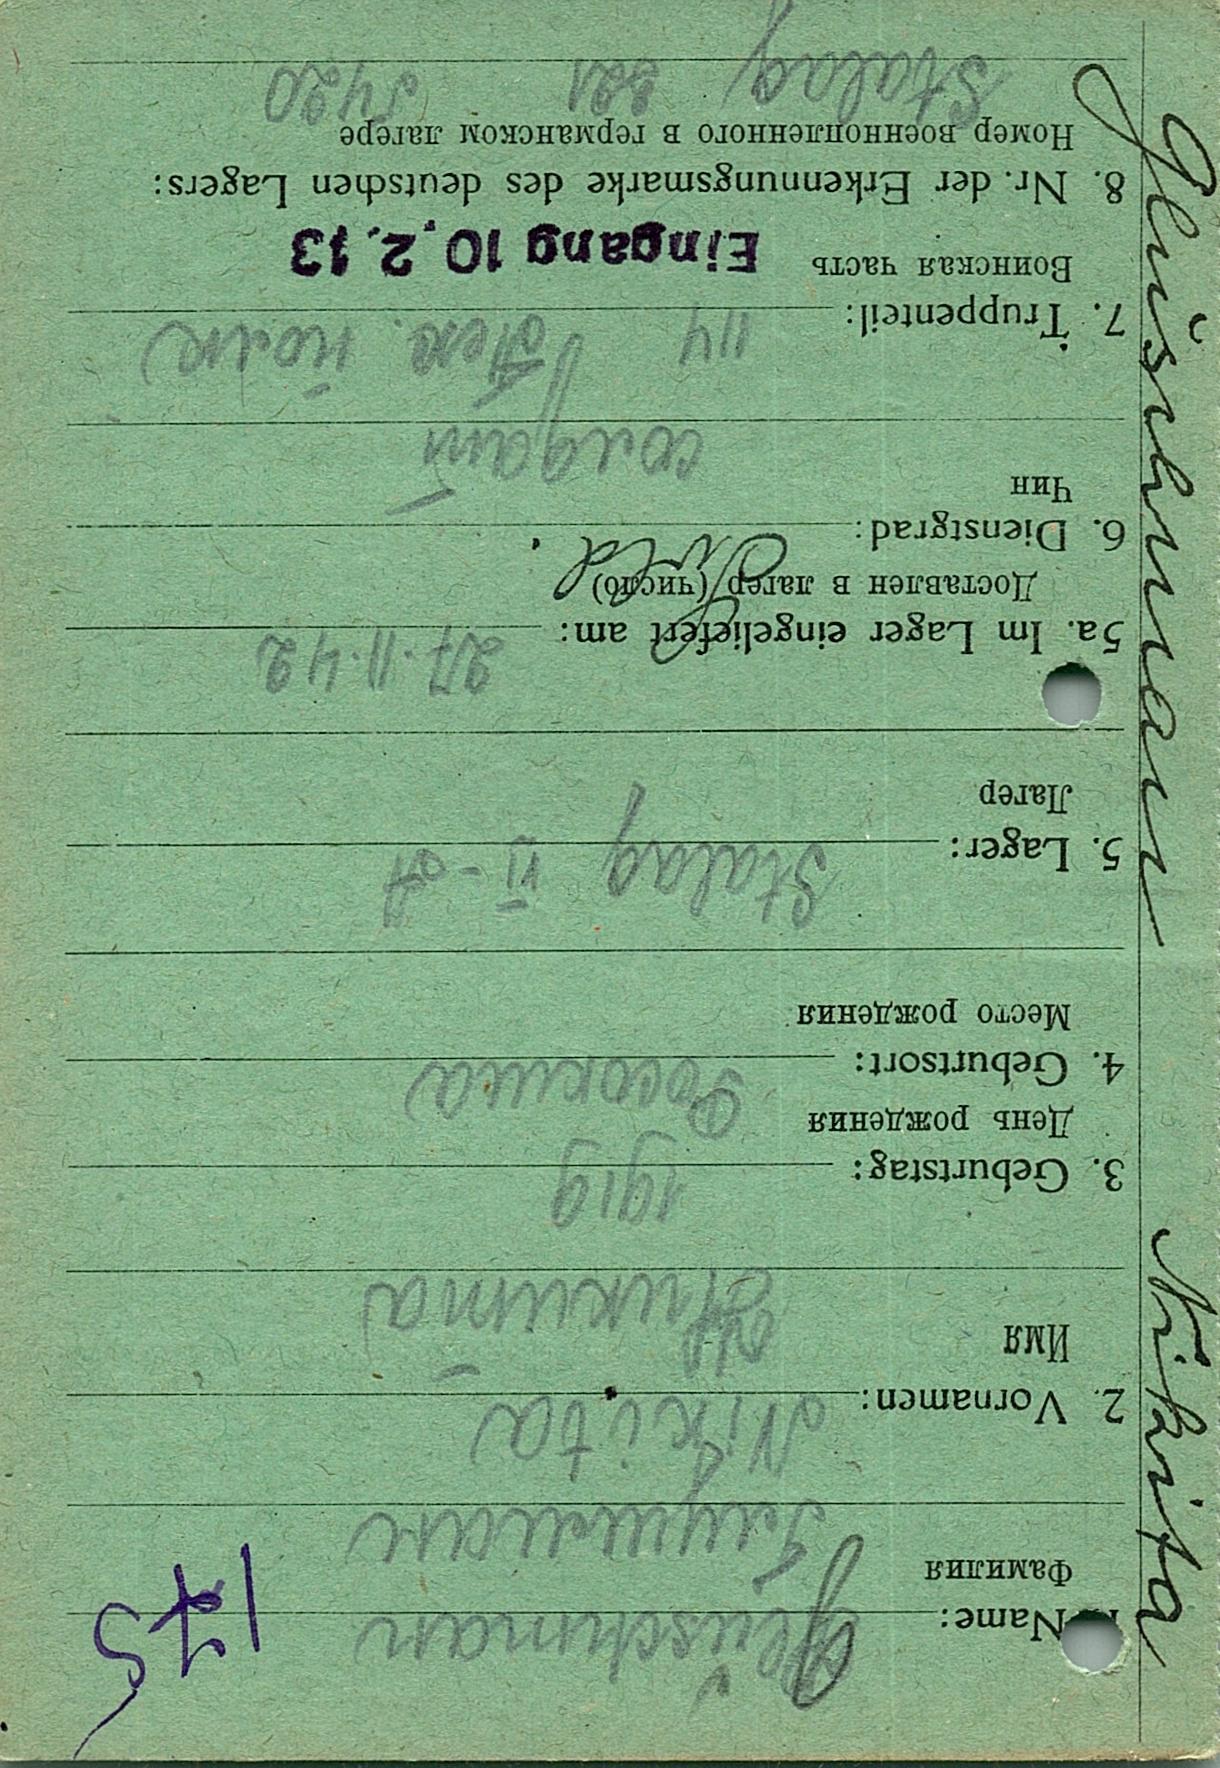 175
Name: Gluschman
Фамилия Глушман
2. Vornamen: Nikita
Имя Никита
3. Geburtstag: 1919
День рождения
4. Geburtsort:
Место рождения
5. Lager: Stalag VI-A
Лагер
5a. Im Lager eingeliefert am: 27.11.42
Доставлен в лагер (число)
6. Dienstgrad: Sold.
Чин солдат
7. Truppenteil: 114
Воинская часть Eingang 10.2.43
8. Nr. der Erkennungsmarke des deutschen Lagers:
Номер военнопленного в германском лагере
Stalag 321 5420
Gluschman Nikita